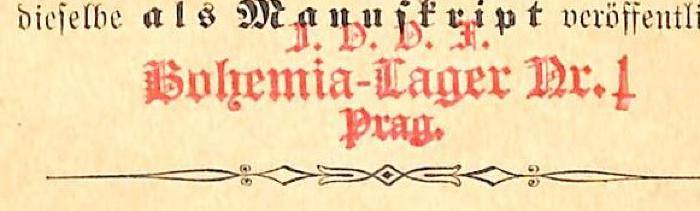 dieselbe als Manuskript veröffentli
I. O. O. F.
Bohemia-Lager Nr. 1
Prag.